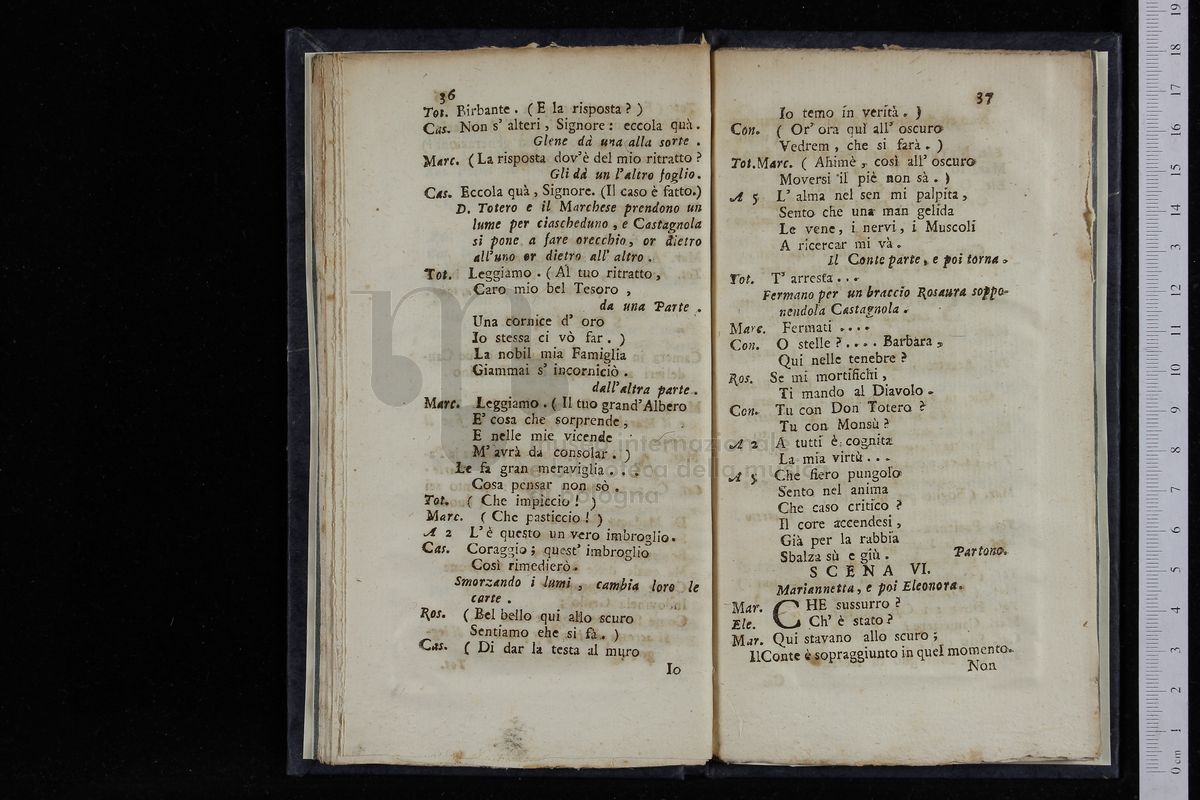 36
Tot. Birbante. (E la risposta?)
Cas. Non s' alteri, Signore: eccola quà.
Glene dà una alla sorte.
Marc. (La risposta dov'è del mio ritratto?
Gli dà un l'altro foglio.
Cas. Eccola quà, Signore. (Il caso è fatto.)
D. Totero e il Marchese prendono un
lume per ciascheduno, e Castagnola
si pone a fare orecchio, or dietro
all'uno or dietro all' altro.
Tot. Leggiamo. (Al tuo ritratto,
Caro mio bel Tesoro,
da una Parte.
Una cornice d' oro
Io stessa ci vò far.)
La nobil mia Famiglia
Giammai s' incorniciò.
dall'altra parte.
Marc. Leggiamo. (Il tuo grand'Albero
E' cosa che sorprende,
E nelle mie vicende
M' avrà da consolar.)
Le fa gran meraviglia...
Cosa pensar non sò.
Tot. (Che impiccio!)
Marc. (Che pasticcio!)
A 2 L' è questo un vero imbroglio.
Cas. Coraggio; quest' imbroglio
Così rimedierò.
Smorzando i lumi, cambia loro le
carte.
Ros. (Bel bello qui allo scuro
Sentiamo che si fà.)
Cas. (Di dar la testa al muro
Io
37
Io temo in verità.)
Con. (Or' ora quì all' oscuro
Vedrem, che si farà.)
Tot.Marc. (Ahimè, così all' oscuro
Moversi il piè non sà.)
A 5 L' alma nel sen mi palpita,
Sento che una man gelida
Le vene, i nervi, i Muscoli
A ricercar mi và.
Il Conte parte, e poi torna.
Tot. T' arresta...
Fermano per un braccio Rosaura soppo-
nendola Castagnola.
Marc. Fermati....
Con. O stelle?.... Barbara,
Qui nelle tenebre?
Ros. Se mi mortifichi,
Ti mando al Diavolo.
Con. Tu con Don Totero?
Tu con Monsù?
A 2 A tutti è cognita
La mia virtù...
A 5 Che fiero pungolo
Sento nel anima
Che caso critico?
Il core accendesi,
Già per la rabbia
Sbalza sù e giù. Partono.
SCENA VI.
Mariannetta, e poi Eleonora.
Mar. CHE sussurro?
Ele. Ch' è stato?
Mar. Qui stavano allo scuro;
IlConte è sopraggiunto in quel momento.
Non
museo internazionale
e biblioteca della musica
di bologna
0 cm 1 2 3 4 5 6 7 8 9 10 11 12 13 14 15 16 17 18 19